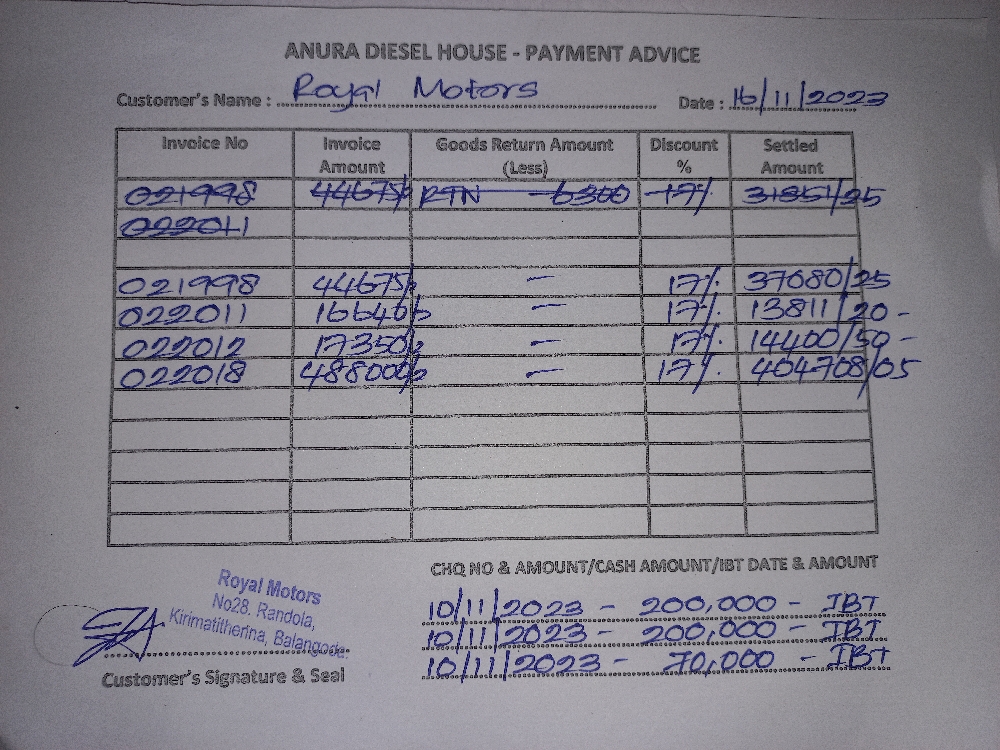 ANURA DIESEL HOUSE - PAYMENT ADVICE
Customer's Name : Royal Motors Date : 16/11/2023
Invoice No Invoice Amount Goods Return Amount (Less) Discount % Settled Amount
021998 44675/- RTN - 6300 17% 31851/25
022011
021998 44675/- - 17% 37080/25
022011 16640/- - 17% 13811/20 -
022012 17350/- - 17% 14400/50 -
022018 488000/- - 17% 404708/05
CHQ NO & AMOUNT/CASH AMOUNT/IBT DATE & AMOUNT
10/11/2023 - 200,000 - IBT
10/11/2023 - 200,000 - IBT
10/11/2023 - 70,000 - IBT
Royal Motors
No28. Randola,
Kirimatitherina, Balangoda.
Customer's Signature & Seal